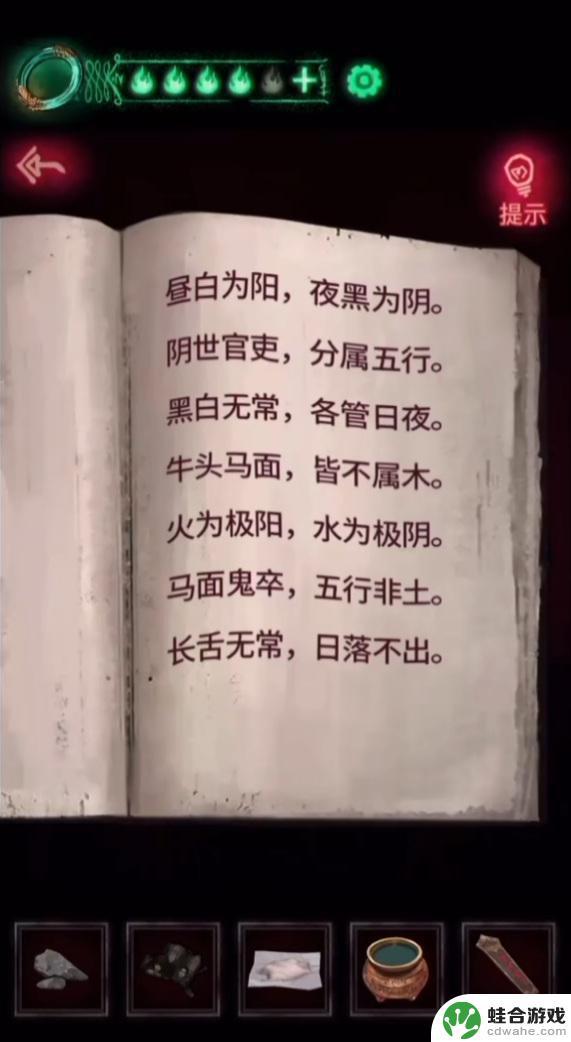 提示
昼白为阳，夜黑为阴。
阴世官吏，分属五行。
黑白无常，各管日夜。
牛头马面，皆不属木。
火为极阳，水为极阴。
马面鬼卒，五行非土。
长舌无常，日落不出。
蛙合游戏
cdwahe.com